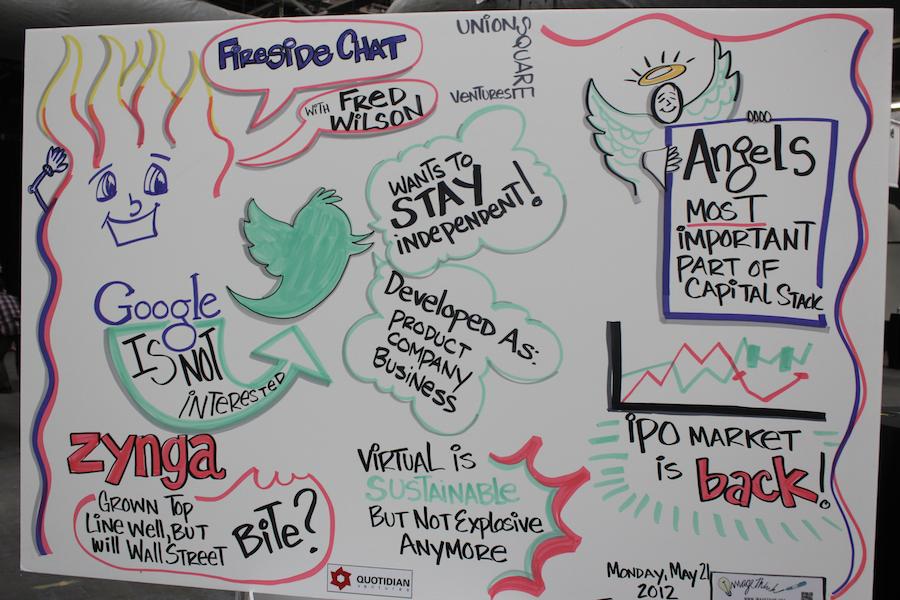 Fireside Chat
with Fred
Wilson
Union
Square
Ventures
Wants to
STAY
independent!
Angels
MOST
important
part of
capital stack
Google
IS NOT
interested
Developed As:
product
company
business
IPO market
is back!
zynga
Grown Top
Line Well, But
will Wall Street
Bite?
Virtual is
Sustainable
But Not Explosive
Anymore
QUOTIDIAN
ventures
Monday, May 21
2012
ImageThink